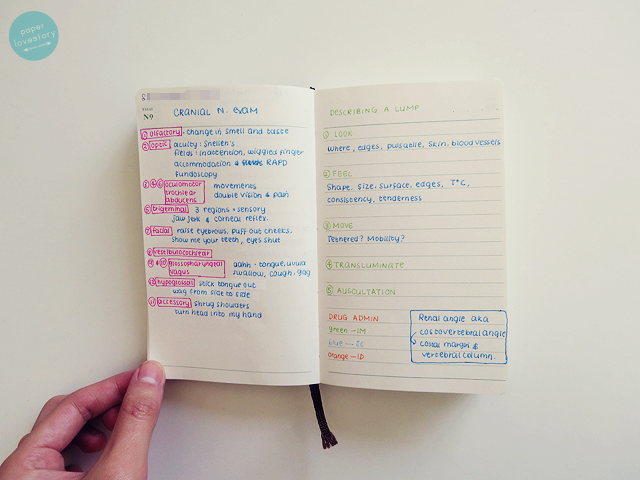 paper
lovestory
S
STAGE
Nº
CRANIAL N. EXAM
① olfactory · change in smell and taste
② optic acuity: Snellen's
fields: inattention, wiggled finger
accommodation & RAPD
fundoscopy
③④⑥ oculomotor movements
trochlear double vision & pain
abducens
⑤ trigeminal 3 regions · sensory
jaw jerk & corneal reflex.
⑦ facial raise eyebrows, puff out cheeks,
show me your teeth, eyes shut
⑧ vestibulocochlear
⑨&⑩ glossopharyngeal aahh · tongue, uvula
vagus swallow, cough, gag
⑫ hypoglossal stick tongue out
wag from side to side
⑪ accessory shrug shoulders
turn head into my hand
DESCRIBING A LUMP
① LOOK
where, edges, pulsatile, skin, blood vessels
② FEEL
Shape, size, surface, edges, T°C,
consistency, tenderness
③ MOVE
Tethered? Mobility?
④ TRANSLUMINATE
⑤ AUSCULTATION
DRUG ADMIN
green - IM
blue - SC
orange - ID
Renal angle aka
costovertebral angle
costal margin &
vertebral column.